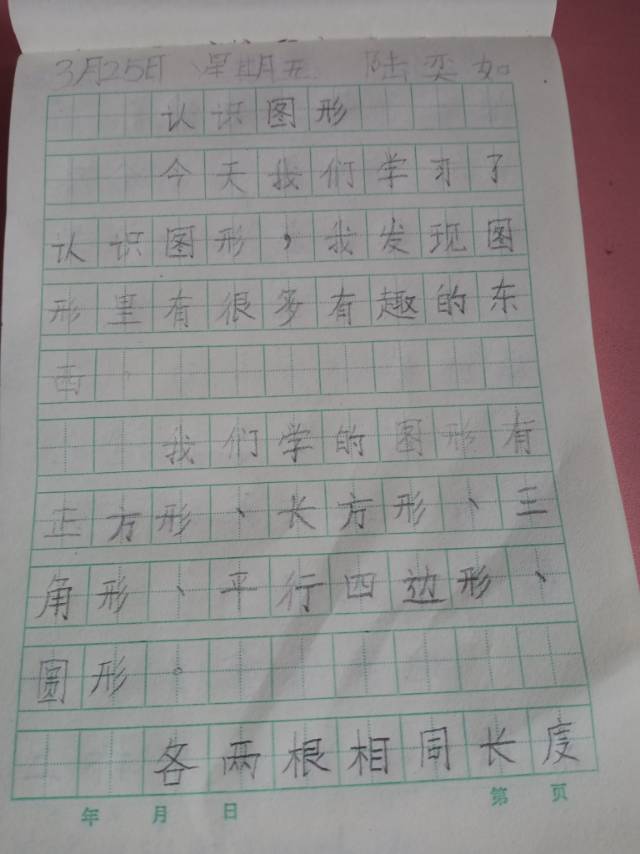 3月25日 星期五 陆奕如
认识图形
今天我们学习了
认识图形，我发现图
形里有很多有趣的东
西
我们学的图形有
正方形、长方形、三
角形、平行四边形、
圆形。
各两根相同长度
年 月 日 第 页